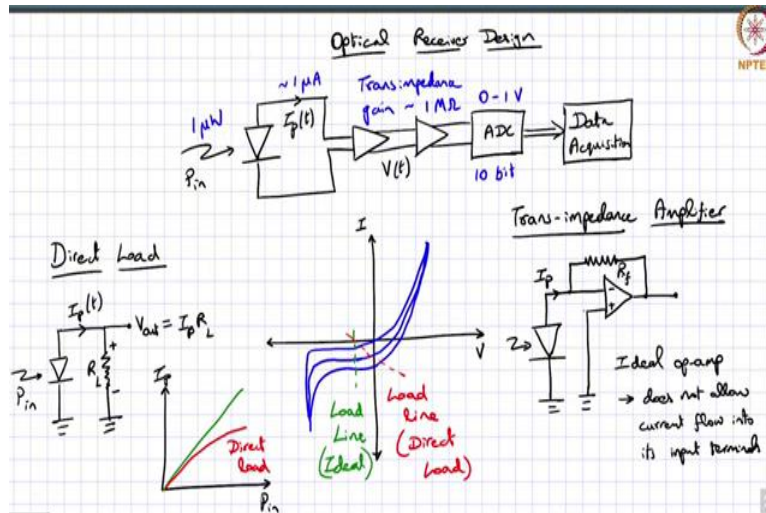 Optical Receiver Design
NPTEL
~1μA
1μW
Ip(t)
Pin
Trans-impedance
gain ~ 1MΩ
V(t)
0-1V
ADC
10 bit
Data
Acquisition
Direct Load
Ip(t)
Vout = IpRL
RL
+
-
Pin
Ip
Direct
load
Pin
I
V
Load
Line
(Ideal)
Load
line
(Direct
Load)
Trans-impedance Amplifier
Ip
Rf
-
+
Ideal op-amp
→ does not allow
current flow into
its input terminals